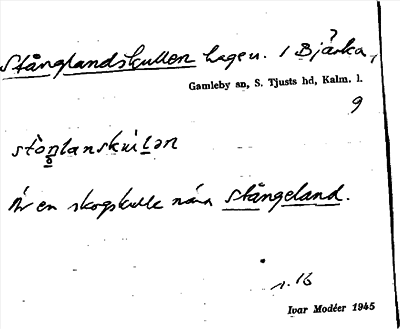 ?
Stånglandskullen hagen. 1 Bjärka,
Gamleby sn, S. Tjusts hd, Kalm. l.
9
Är en skogskulle nära Stångeland.
s. 16
Ivar Modéer 1945